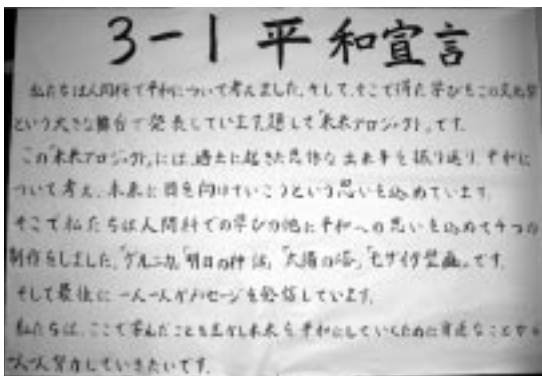 3-1 平和宣言
私たちは人間科で平和について考えました。そして、そこで得た学びをこの文化祭
という大きな舞台で発表しています。題して「未来プロジェクト」です。
この「未来プロジェクト」には、過去に起きた悲惨な出来事を振り返り、平和に
ついて考え、未来に目を向けていこうという思いを込めています。
そこで私たちは人間科での学びの他に平和への思いを込めて4つの
制作をしました。「ゲルニカ」「明日の神話」「太陽の塔」「モザイク壁画」です。
そして最後に一人一人がメッセージを発信しています。
私たちは、ここで学んだことを生かし未来を平和にしていくために身近なことから
一人一人努力していきたいです。